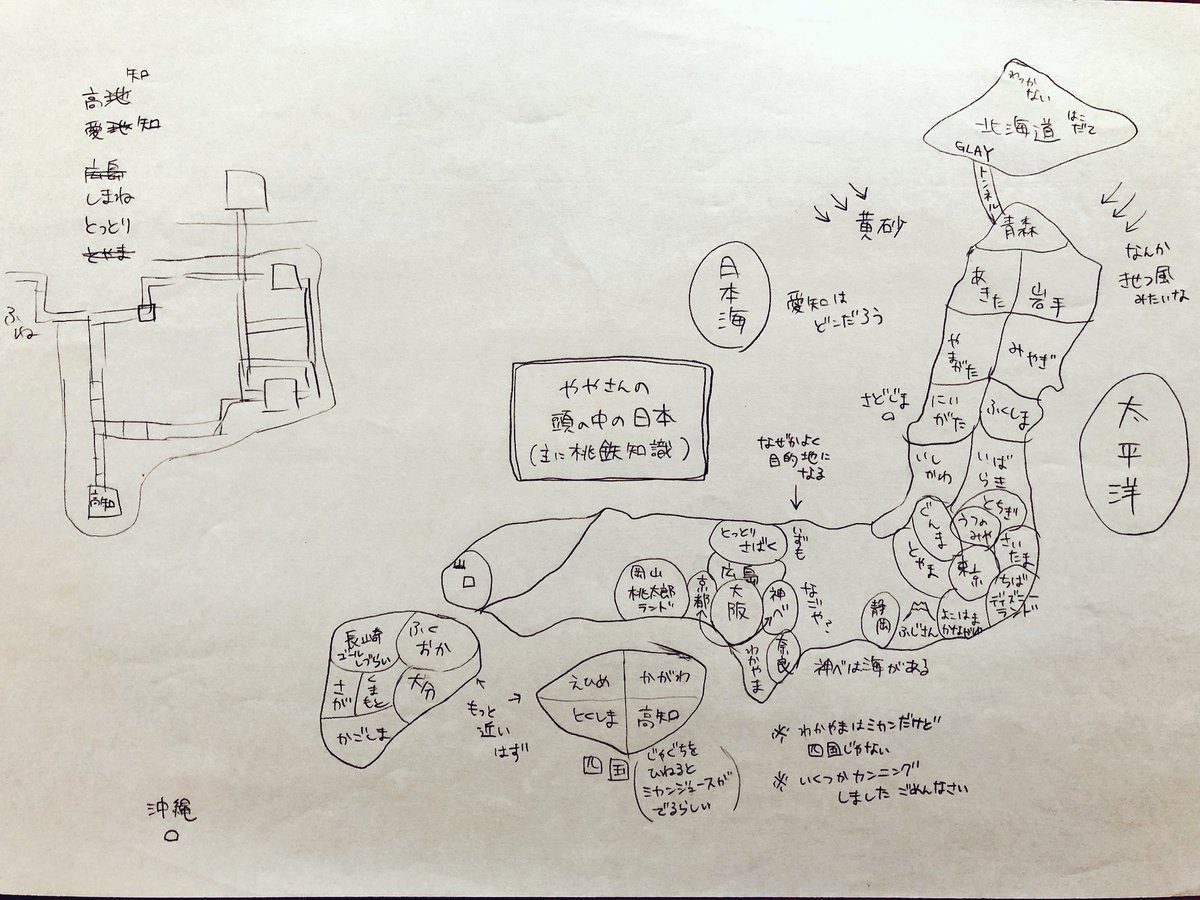 知
高地
愛地知
広島
しまね
とっとり
とやま
ふね
高知
わっか
ない
北海道
はこ
だて
GLAY
トンネル
青森
あき
た
岩手
やま
がた
みやぎ
さどじま
にい
がた
ふくしま
いし
かわ
いば
らき
とちぎ
ぐんま
うつの
みや
さい
たま
とやま
東京
ちば
ディズニー
ランド
よこはま
かながわ
ふじさん
静岡
黄砂
なんか
きせつ風
みたいな
日本海
太平洋
愛知は
どこだろう
ややさんの
頭の中の日本
(主に桃鉄知識)
なぜかよく
目的地に
なる
いずも
とっとり
さばく
広島
岡山
桃太郎
ランド
京都
大阪
神べ
なごや?
奈良
わかやま
神べは海がある
山口
長崎
ゴール
しづらい
ふく
おか
さが
くまもと
大分
かごしま
もっと
近い
はず
えひめ
かがわ
とくしま
高知
四国
じゃぐちを
ひねると
ミカンジュースが
でるらしい
※わかやまはミカンだけど
四国じゃない
※いくつかカンニング
しました ごめんなさい
沖縄